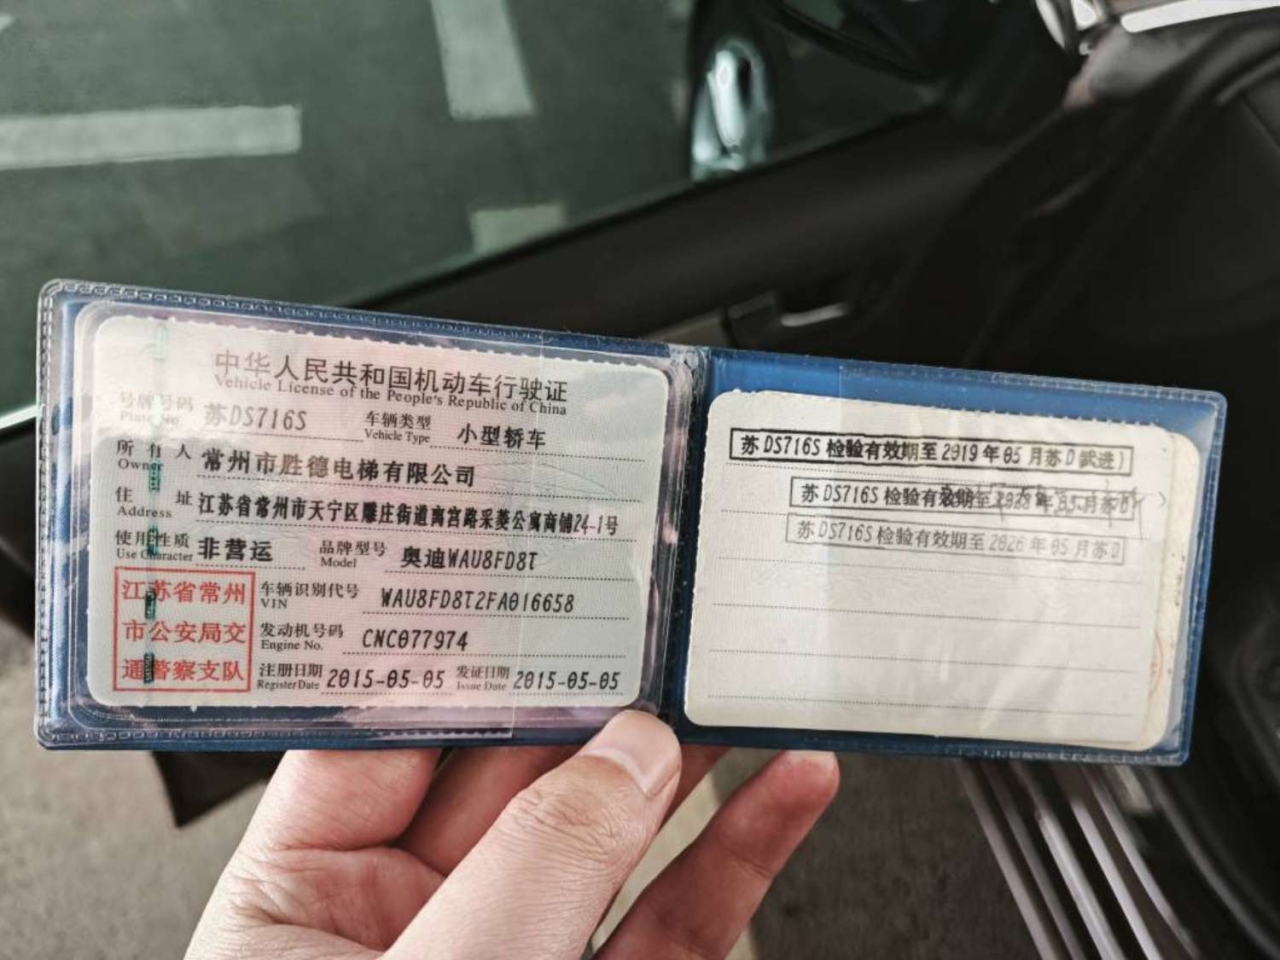 中华人民共和国机动车行驶证
Vehicle License of the People's Republic of China
号牌号码 苏DS716S 车辆类型 小型轿车
Plate No. Vehicle Type
所有人 常州市胜德电梯有限公司
Owner
住址 江苏省常州市天宁区雕庄街道离宫路采菱公寓商铺24-1号
Address
使用性质 非营运 品牌型号 奥迪WAU8FD8T
Use Character Model
江苏省常州
市公安局交
通警察支队
车辆识别代号 WAU8FD8T2FA016658
VIN
发动机号码 CNC077974
Engine No.
注册日期 2015-05-05 发证日期 2015-05-05
Register Date Issue Date
苏DS716S 检验有效期至 2019 年 05 月苏D(武进)
苏DS716S 检验有效期至
苏DS716S 检验有效期至 2026 年 05 月苏D